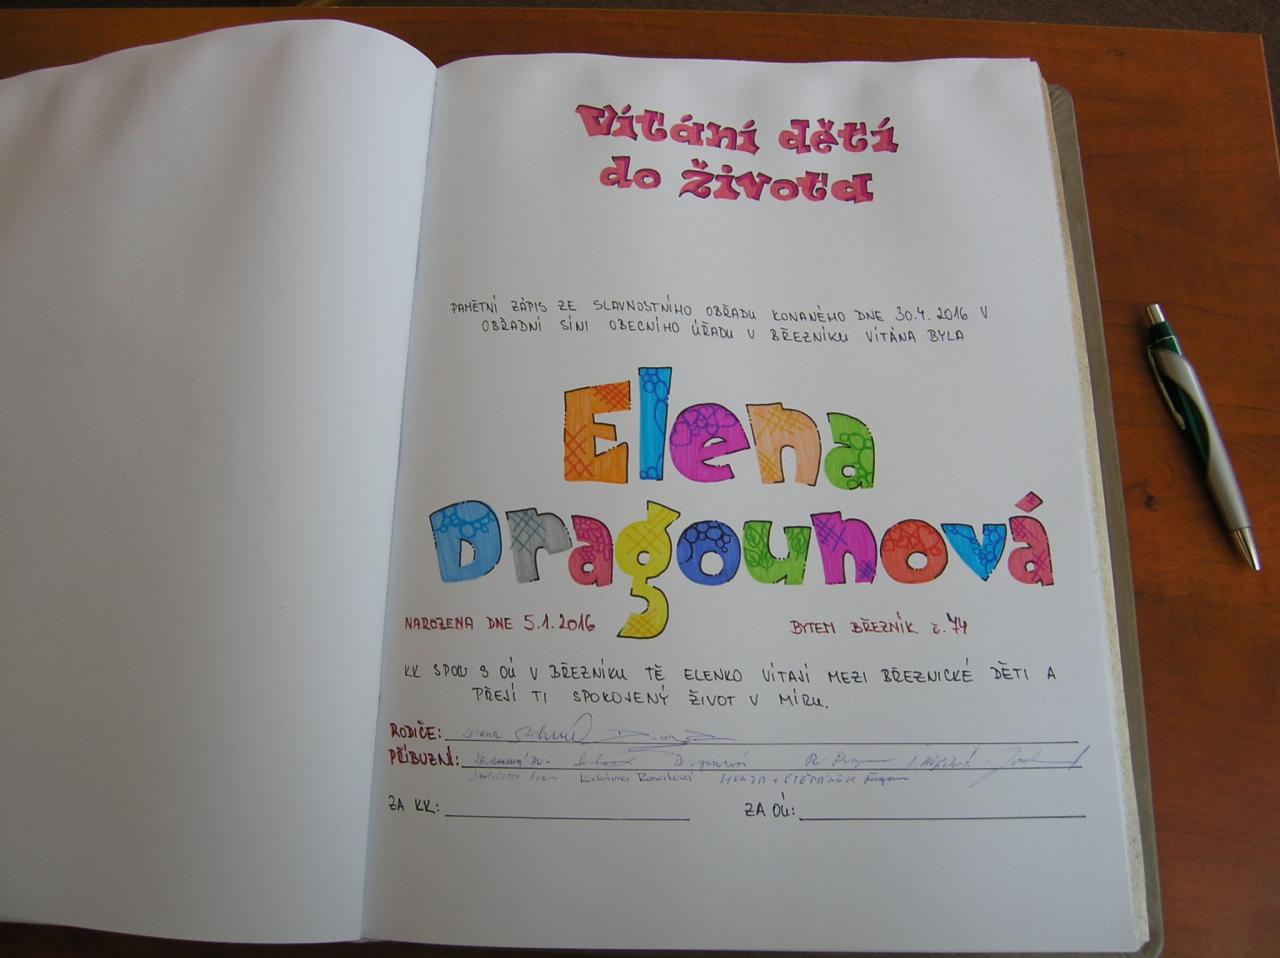 Vítání dětí
do života
PAMĚTNÍ ZÁPIS ZE SLAVNOSTNÍHO OBŘADU KONANÉHO DNE 30.4. 2016 V
OBŘADNÍ SÍNI OBECNÍHO ÚŘADU V BŘEZNÍKU VÍTÁNA BYLA
Elena
Dragounová
NAROZENA DNE 5.1.2016 BYTEM BŘEZNÍK č.74
KK SPOLU S OÚ V BŘEZNÍKU TĚ ELENKO VÍTAJÍ MEZI BŘEZNICKÉ DĚTI A
PŘEJÍ TI SPOKOJENÝ ŽIVOT V MÍRU.
RODIČE:
PŘÍBUZNÍ: Dragounová
Kateřina Nováková HONZA + ŠTĚPÁNEK
ZA KK: ZA OÚ: